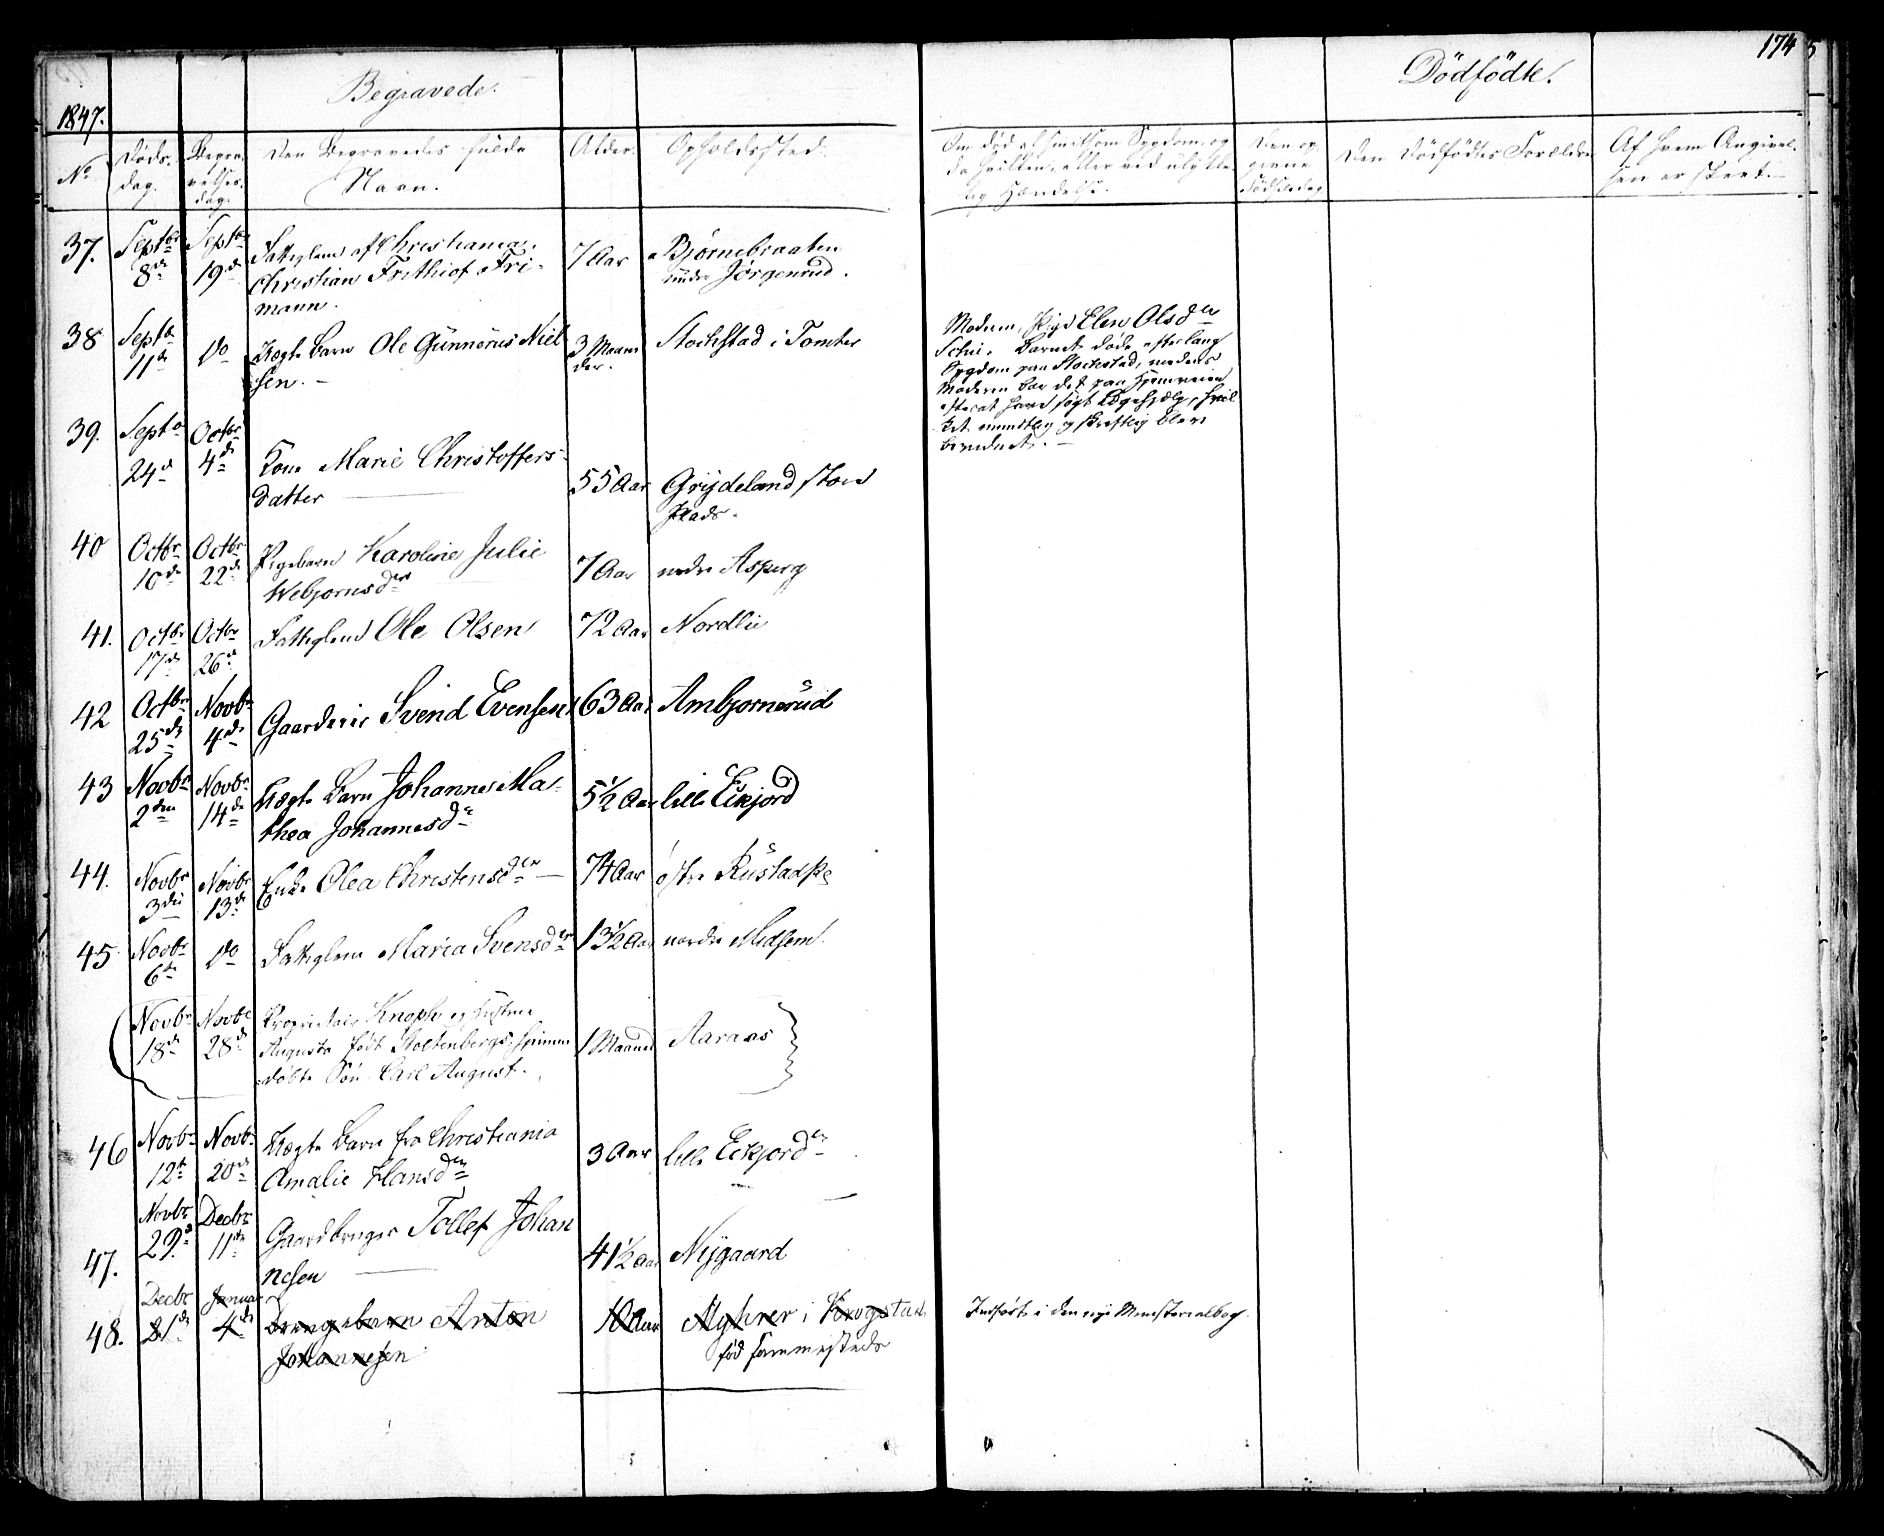 174
1847.
Begravede.
Dødfødte.
No
Døds-
dag.
Begra-
velses-
dag.
Den Begravedes fulde
Navn.
Alder.
Opholdssted.
Om død af smitsom Sygdom, og
da hvilken, eller ved ulykke-
lig Hændelse.
Den op-
givne
Fødselsdag
Den Dødfødtes Forældre
Af hvem Angivel-
sen er skeet.
37.
Septbr
8de
Septbr
19de
Fattiglem af Christiania,
Christian Frithiof Fri-
mann.
7 Aar
Bjørnebraaten
under Jørgenrud.
38
Septbr
11te
Do
Uægte Barn Ole Gunnerius Niel-
sen.
3 Maane-
der.
Stochstad i Tomter
Moderen, Pige Elen Olsdtr
Barnet døde efter lang
Sygdom paa Stochstad, medens
Moderen bar det paa Hjemveien
efterat have søgt Lægehjælp, hvil-
ket mundtlig og skriftlig blev
bevidnet.
39.
Septbr
24de
Octbr
4de
Kone Marie Christoffers-
datter
55 Aar
Grydeland store
Plads.
40
Octbr
10de
Octbr
22de
Pigebarn Karoline Julie
Webjørnsdtr
7 Aar
nedre Asperg
41.
Octbr
17de
Octbr
26de
Fattiglem Ole Olsen
72 Aar
Nordlie
42
Octbr
25de
Novbr
4de
Gaardeier Svend Evensen
63 Aar
Ambjørnsrud
43
Novbr
2den
Novbr
14de
Uægte Barn Johanne Ma-
thea Johannesdr
5 1/2 Aar
lille Eikjord
44.
Novbr
3die
Novbr
13de
Enke Olea Christensdtr
74 Aar
østre Rustad
45
Novbr
6te
Do
Fattiglem Maria Svensdtr
13 1/2 Aar
nordre Midsem
Novbr
18de
Novbr
28de
Proprietair Knophs og Hustrue
Augusta født Stoltenbergs, hjemme
døbte Søn, Carl August.
1 Maaned
Aaraas
46
Novbr
12te
Novbr
20de
Uægte Barn fra Christiania
Amalie Hansdtr
3 Aar
lille Eikjord
47.
Novbr
29de
Decbr
11te
Gaardbruger Tollef Johan-
nesen
41 1/2 Aar
Nygaard
48.
Decbr
21de
Januar
4de
Drengebarn Anton
Johannesen
10 Aar
Myhrer i Krogstad
fød sammesteds
Indført i den nye Ministerialbog.